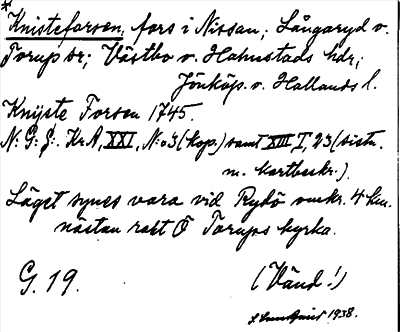 *Knisteforsen, fors i Nissan; Långaryd o.
Torup sr; Västbo o. Halmstads hdr;
Jönköp. o. Hallands l.
Knijste Forsen 1745.
N: G: S: Kr A, XXI, N:o 3 (kop.) samt XIII, I, 23 (sistn.
m. kartbeskr.).
Läget synes vara vid Rydö omkr. 4 km.
nästan rakt Ö Torups kyrka.
G. 19.
(Vänd!)
1938.